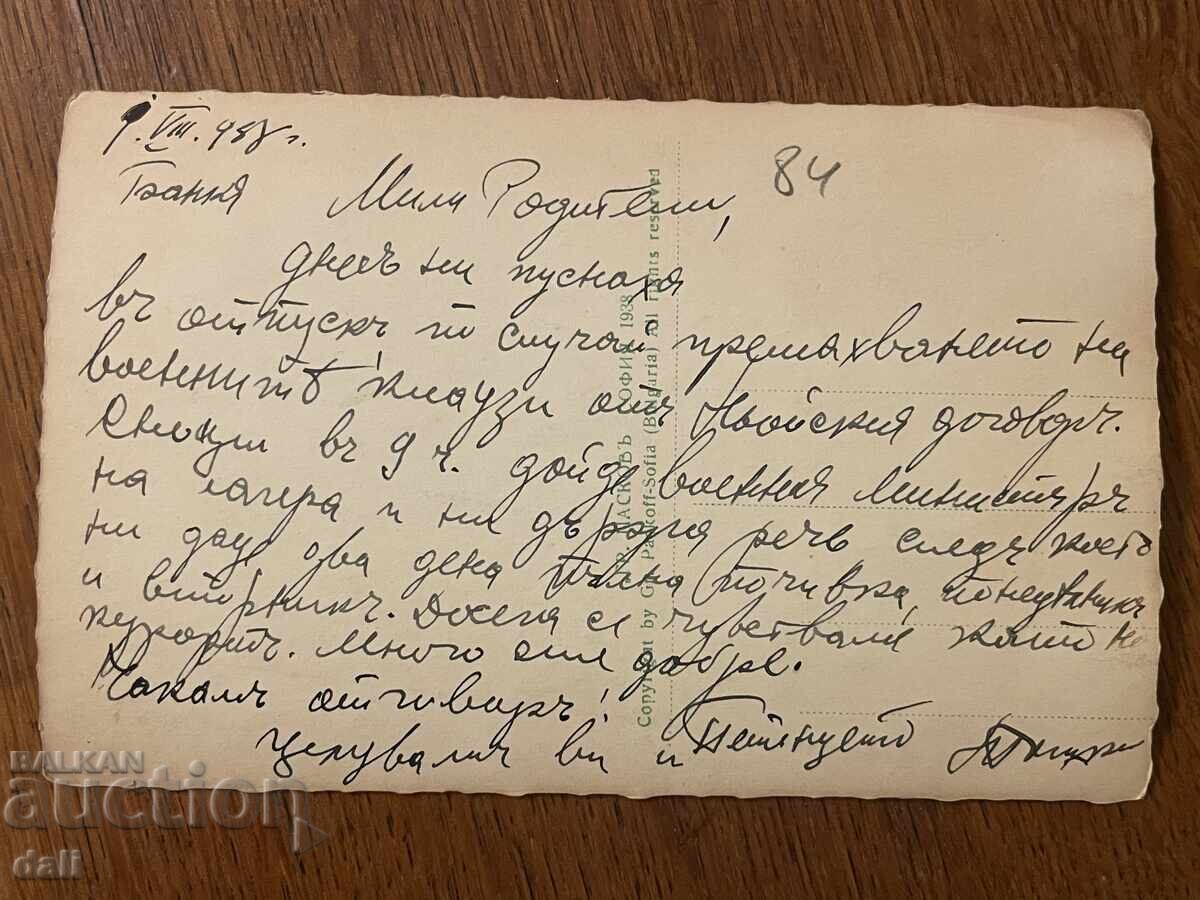 9. VIII. 938 г.
Банкя Мили Родители, 84
днесъ ни пуснаха
въ отпускъ по случай премахването на
военнитѣ клаузи отъ Ньойския договоръ.
Снощи въ 9 ч. дойде военния министъръ
на лагера и ни държа речь следъ което
ни даде два дена пълна почивка, понедѣлникъ
и вторникъ. Досега се чувствали като на
курортъ. Много сме добре.
Чакамъ отговоръ!
Целувамъ ви и
Copyright by Gr. Paskoff-Sofia (Bulgaria) All rights reserved
ГР. ПАСКОВЪ СОФИЯ 1938
BALKAN
auction
dali